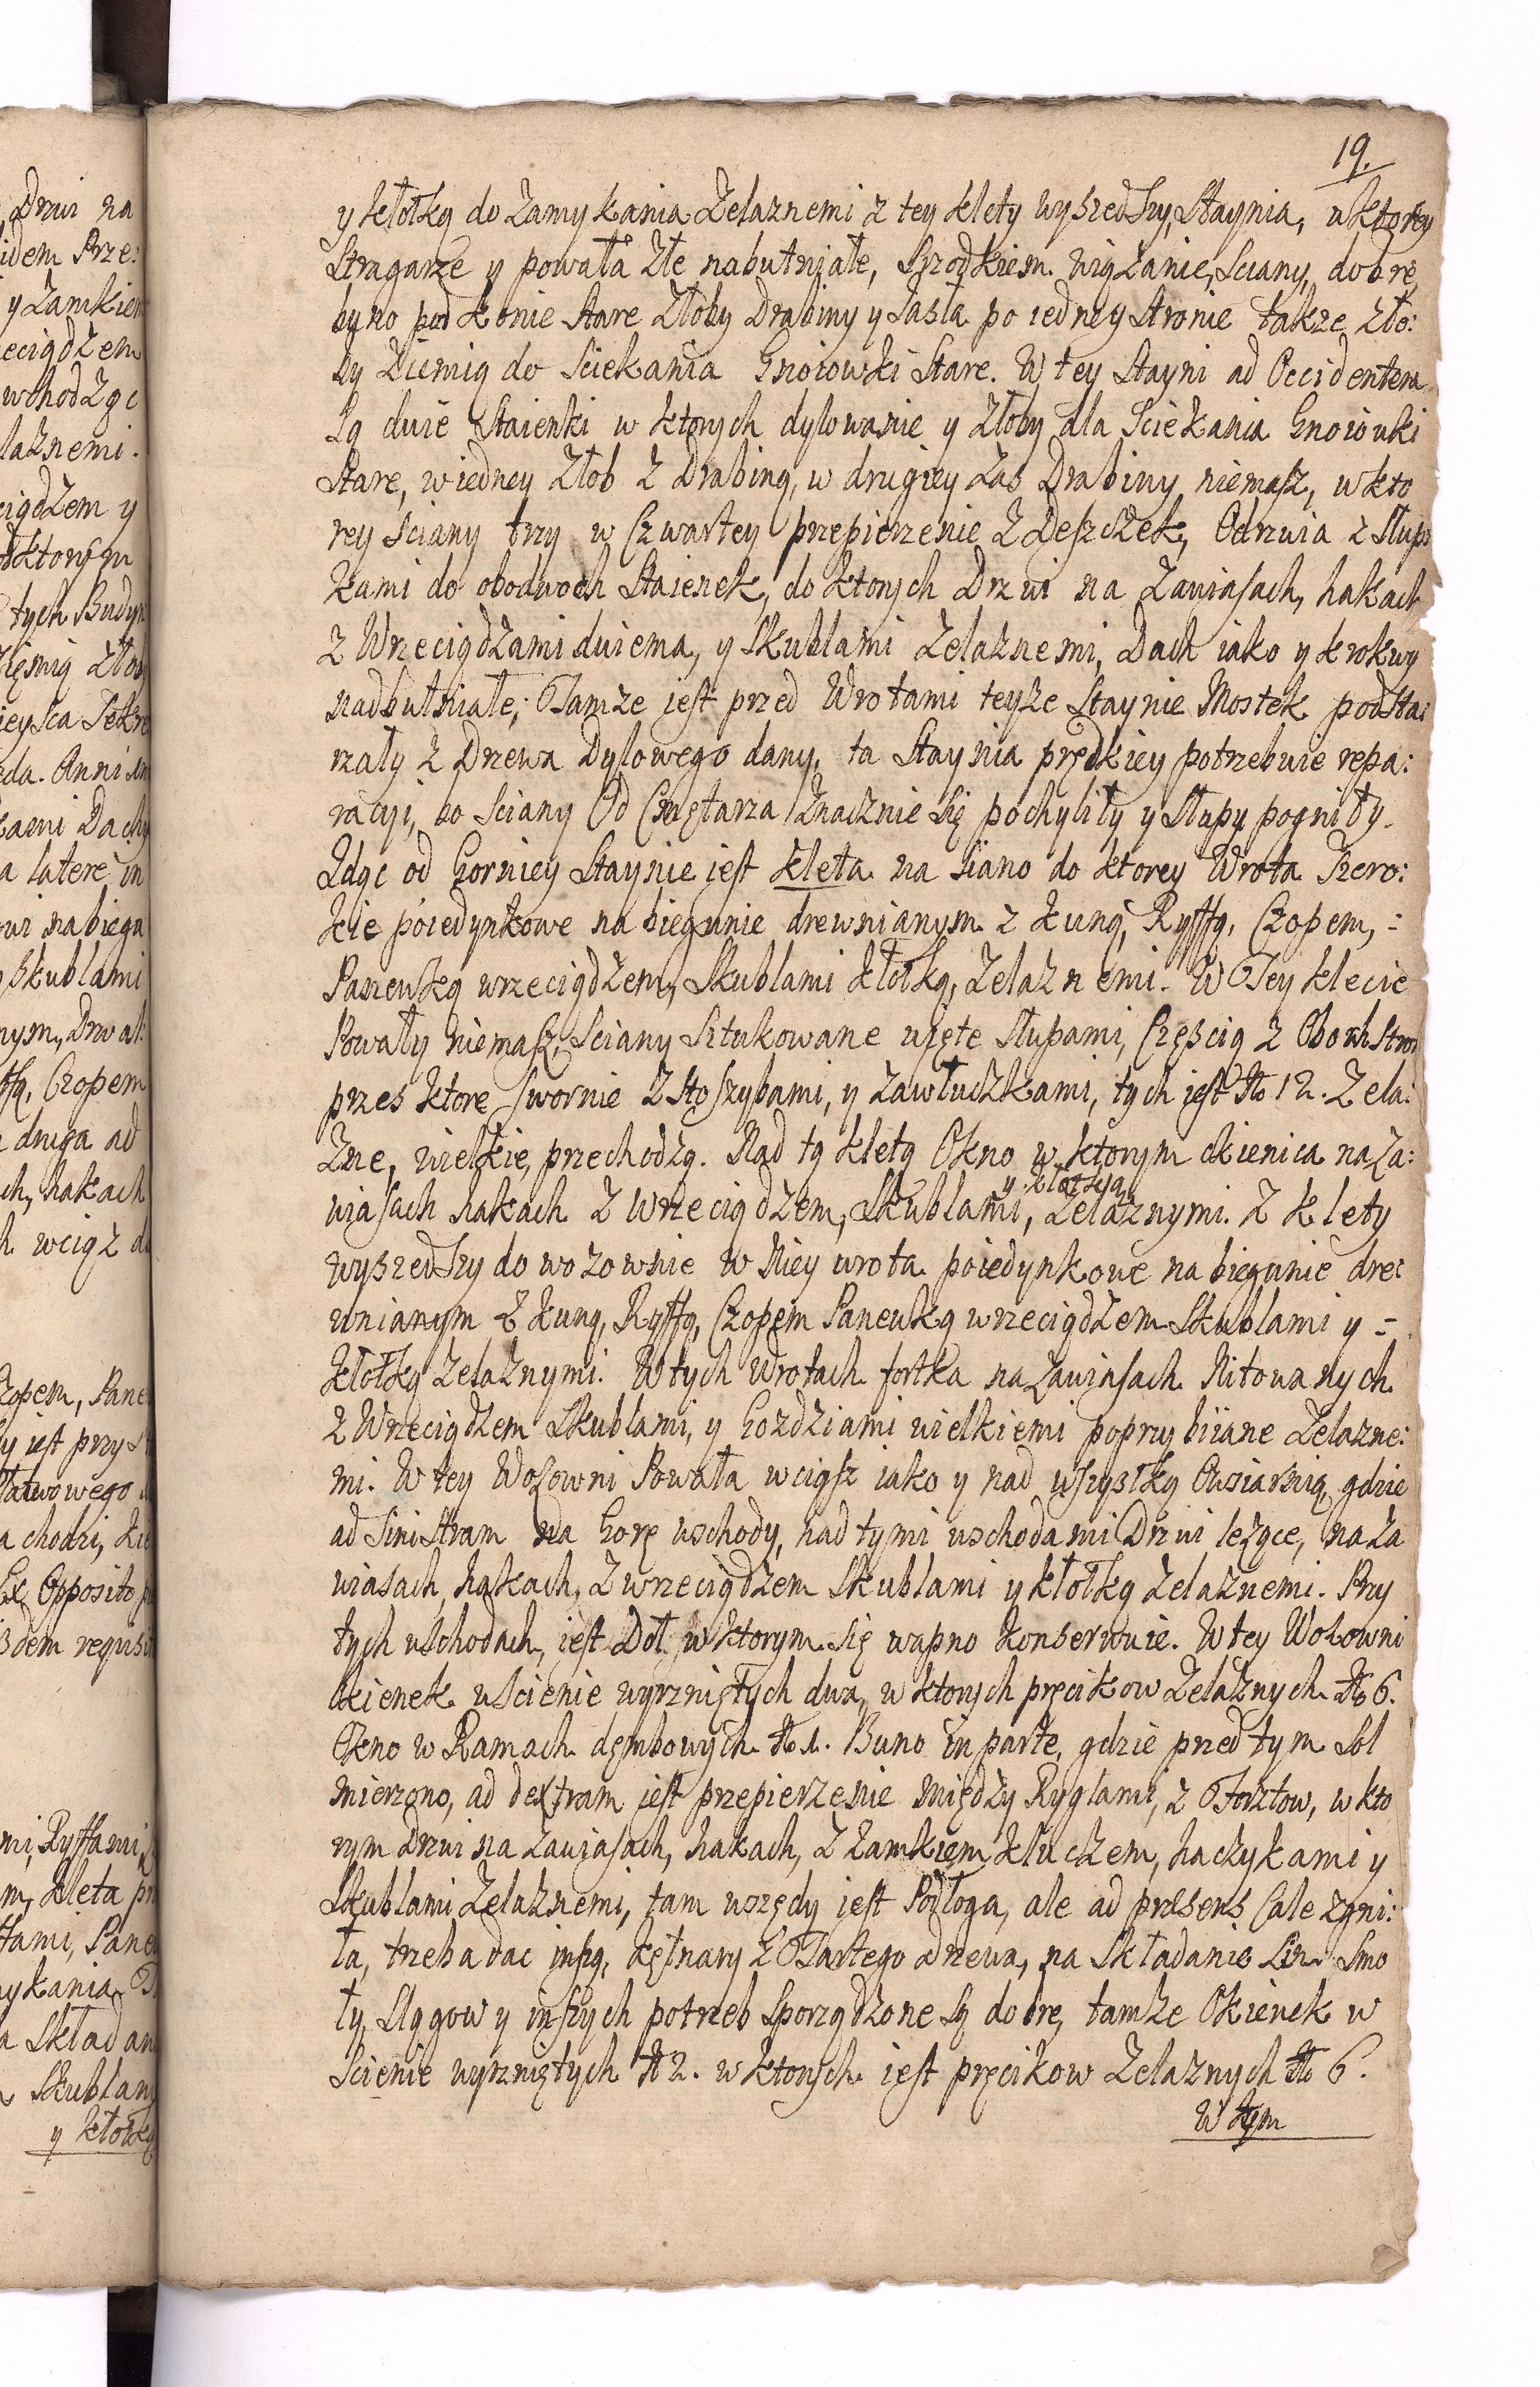 19.
y kłotką do Zamykania Zelaznemi z tey klety wyszedszy, Staynia, w ktorey
Stragarze y powała Złe nabutniałe, Srzodkiem Wiązanie, Sciany, dobre,
byno pod konie Stare Złoby Drabiny y Jasła po iedney Stronie także Zło:
by Ziemią do Sciekania Gnoiowki Stare. W tey Stayni ad Occidentem
Są dwie Staienki w ktorych dylowanie y Złoby dla Sciekania Gnoiowki
Stare, w iedney Złob z Drabiną, w drugiey Zas Drabiny niemasz, w kto
rey Sciany trzy w Czwartey przepierzenie z Deszczek, Odrzwia z Słup
kami do obodwoch Staienek, do ktorych Drzwi na Zawiasach, hakach
z Wrzeciądzami dwiema, y Skublami Zelaznemi, Dach iako y krokwy
nadbutniałe; Tamże jest przed Wrotami teyże Staynie Mostek podsta:
rzały z Drzewa Dylowego dany, ta Staynia prędkiey potrzebuie repa:
racyi, bo Sciany Od Cmętarza Znacznie się pochyliły y Słupy pogniły.
Idąc od Gorniey Staynie jest kleta na siano do ktorey Wrota Szero:
kie poiedynkowe na biegunie drewnianym z kuną, Ryffą, Czopem, =
Panewką wrzeciądzem, Skublami kłotką, Zelaznemi. W Tey klecie
Powały niemasz, Sciany Sztukowane ujęte Słupami, Częscią z Oboch Stron
przes ktore swornie z Stoszybami, y zawłuczkami, tych jest No 12. Zela:
Zne, wielkie, przechodzą. Nad tą kletą Okno w ktorym okienica na Za:
wiasach hakach z wrzeciądzem, Skublami, y klamką Zelaznymi. Z klety
wyszedszy do wozownie w Niey wrota poiedynkowe na biegunie dre:
wnianym z kuną, Ryffą, Czopem Panewką wrzeciądzem Skublami y =
kłotką Zelaznymi. W tych Wrotach fortka na Zawiasach Nitowanych
z Wrzeciądzem Skublami, y Gozdziami wielkiemi poprzybiiane Zelazne:
mi. W tey Wozowni Powała wciąsz iako y nad wszystką Owsiarnią, gdzie
ad Sinistram na Gorę wschody, nad tymi wschodami Drzwi leżące, na Za
wiasach, hakach, z wrzeciądzem Skublami y kłotką Zelaznemi. Przy
tych wschodach, jest Doł w ktorym się wapno konserwuie. W tey Wozowni
Okienek w Scienie wyrzniętych dwa, w ktorych pręcikow Zelaznych No 6.
Okno w Ramach dębowych No 1. Buno in parte, gdzie przed tym Sol
mierzono, ad dextram jest przepierzenie między Ryglami, z Forsztow, w kto
rym drzwi na Zawiasach, hakach, z Zamkiem kluczem, haczykami y
Skublami Zelaznemi, tam wszędy jest Podłoga, ale ad presens Cale zgni:
ła, trzeba dac inszą, kętnary z Tartego drzewa, na Składanie Lin Smo
ły, Slągow y inszych potrzeb Sporządzone Są dobre, tamże Okienek w
Scienie wyrzniętych No 2. w ktorych jest pręcikow Zelaznych No 6.
W tym